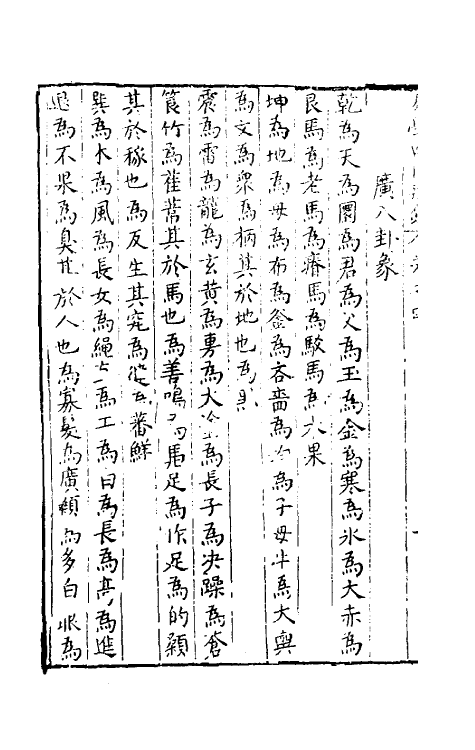 廣八卦象
乾為天為圜為君為父為玉為金為寒為氷為大赤為
良馬為老馬為瘠馬為駁馬為木果
坤為地為母為布為釜為吝嗇為為子母牛為大輿
為文為衆為柄其於地也為
震為雷為龍為玄黃為旉為大為長子為决躁為蒼
筤竹為萑葦其於馬也為善鳴為馬足為作足為的顙
其於稼也為反生其究為為蕃鮮
巽為木為風為長女為繩為工為白為長為高為進
退為不果為臭其於人也為寡髪為廣顙為多白眼為